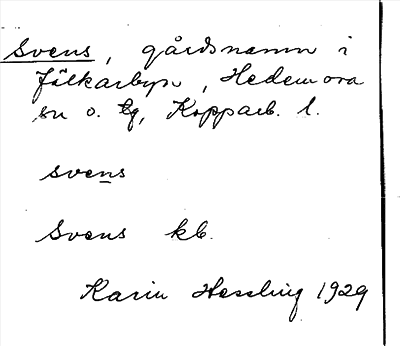 Svens, gårdsnamn i
Jälkarbyn, Hedemora
sn o. tg, Kopparb. l.
svens
Svens kb.
Karin Hessling 1929